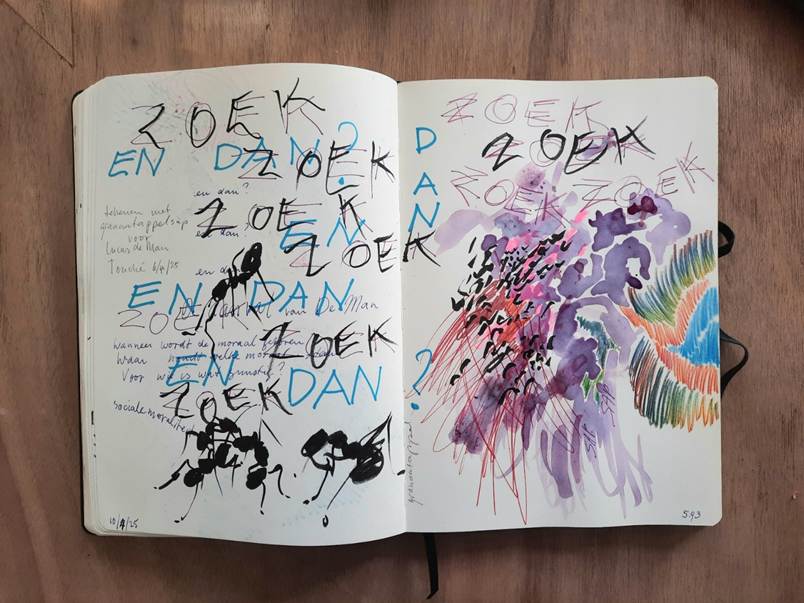 ZOEK
EN DAN?
ZOEK
en dan?
ZOEK
tekenen met
granaatappelsap
voor
Lucas de Man
Touché 6/4/25
dan?
EN
ZOEK
en da
EN DAN
ZOEK
van De Man
wanneer wordt de moraal
ZOEK
waar
EN DAN
Voor wie is wat
ZOEK
sociale moraliteit
10/4/25
ZOEK
ZOEK
DAN
?
ZOEK
ZOEK
granaatappel
593